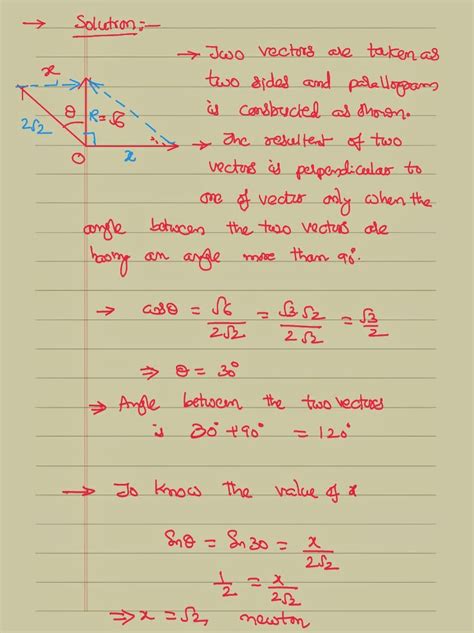 → Solution:-
→ Two vectors are taken as
two sides and parallogram
is constructed as shown.
→ The resultent of two
vectors is perpendicular to
one of vector only when the
angle between the two vectors are
having an angle more than 90°.
x
θ
R=√6
2√2
O
x
→ cosθ = √6/2√2 = √3√2/2√2 = √3/2
⇒ θ = 30°
→ Angle between the two vectors
is 30°+90° = 120°
→ To know the value of x
Sinθ = Sin30 = x/2√2
1/2 = x/2√2
⇒ x = √2, newton